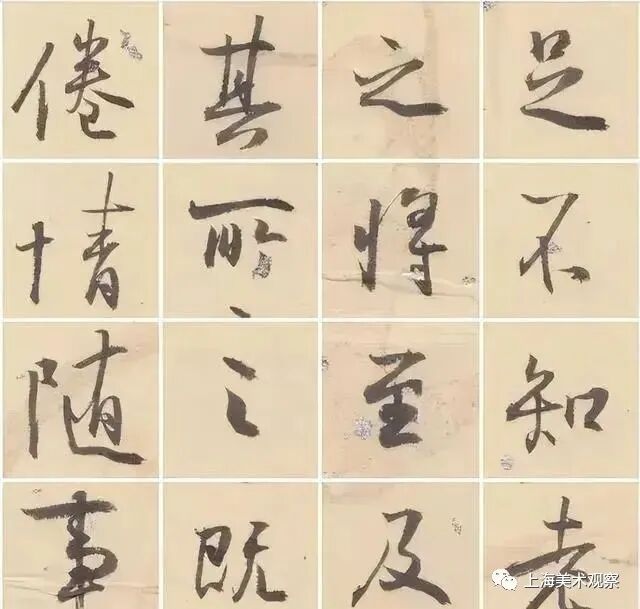 足不知老
之将至及
其所之既
倦情随事
上海美术观察